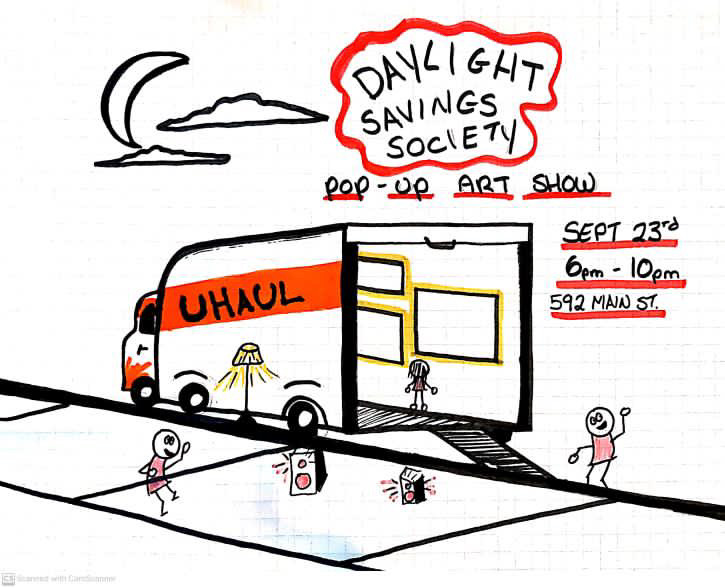 DAYLIGHT
SAVINGS
SOCIETY
POP-UP ART SHOW
SEPT 23rd
6pm - 10pm
592 MAIN ST.
UHAUL
CS Scanned with CamScanner